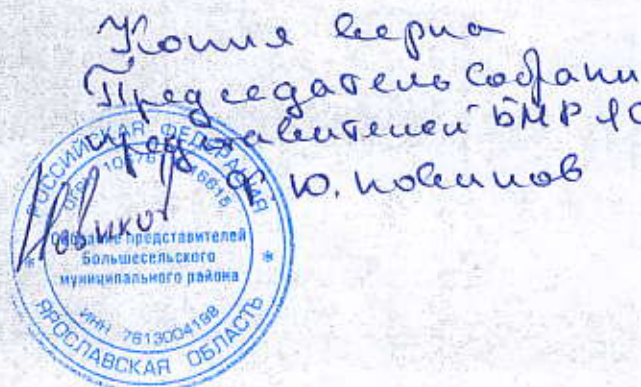 Копия верна
Председатель Собрани
представителей БМР ЯО
Ю. Новиков
РОССИЙСКАЯ ФЕДЕРАЦИЯ
ОГРН
Собрание представителей
Большесельского
муниципального района
ИНН 7613004198
ЯРОСЛАВСКАЯ ОБЛАСТЬ
Новиков